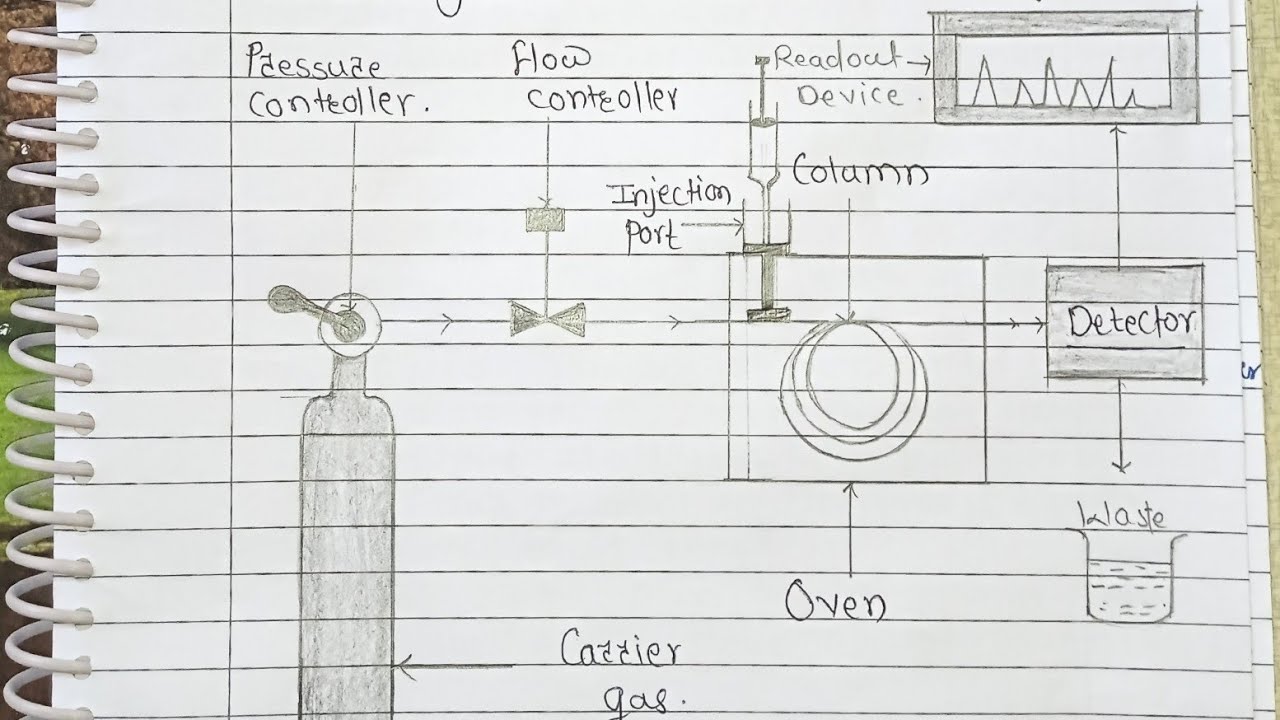 Pressure
Controller.
flow
controller
Readout
Device.
Column
Injection
port
Detector
Waste
Oven
Carrier
gas.